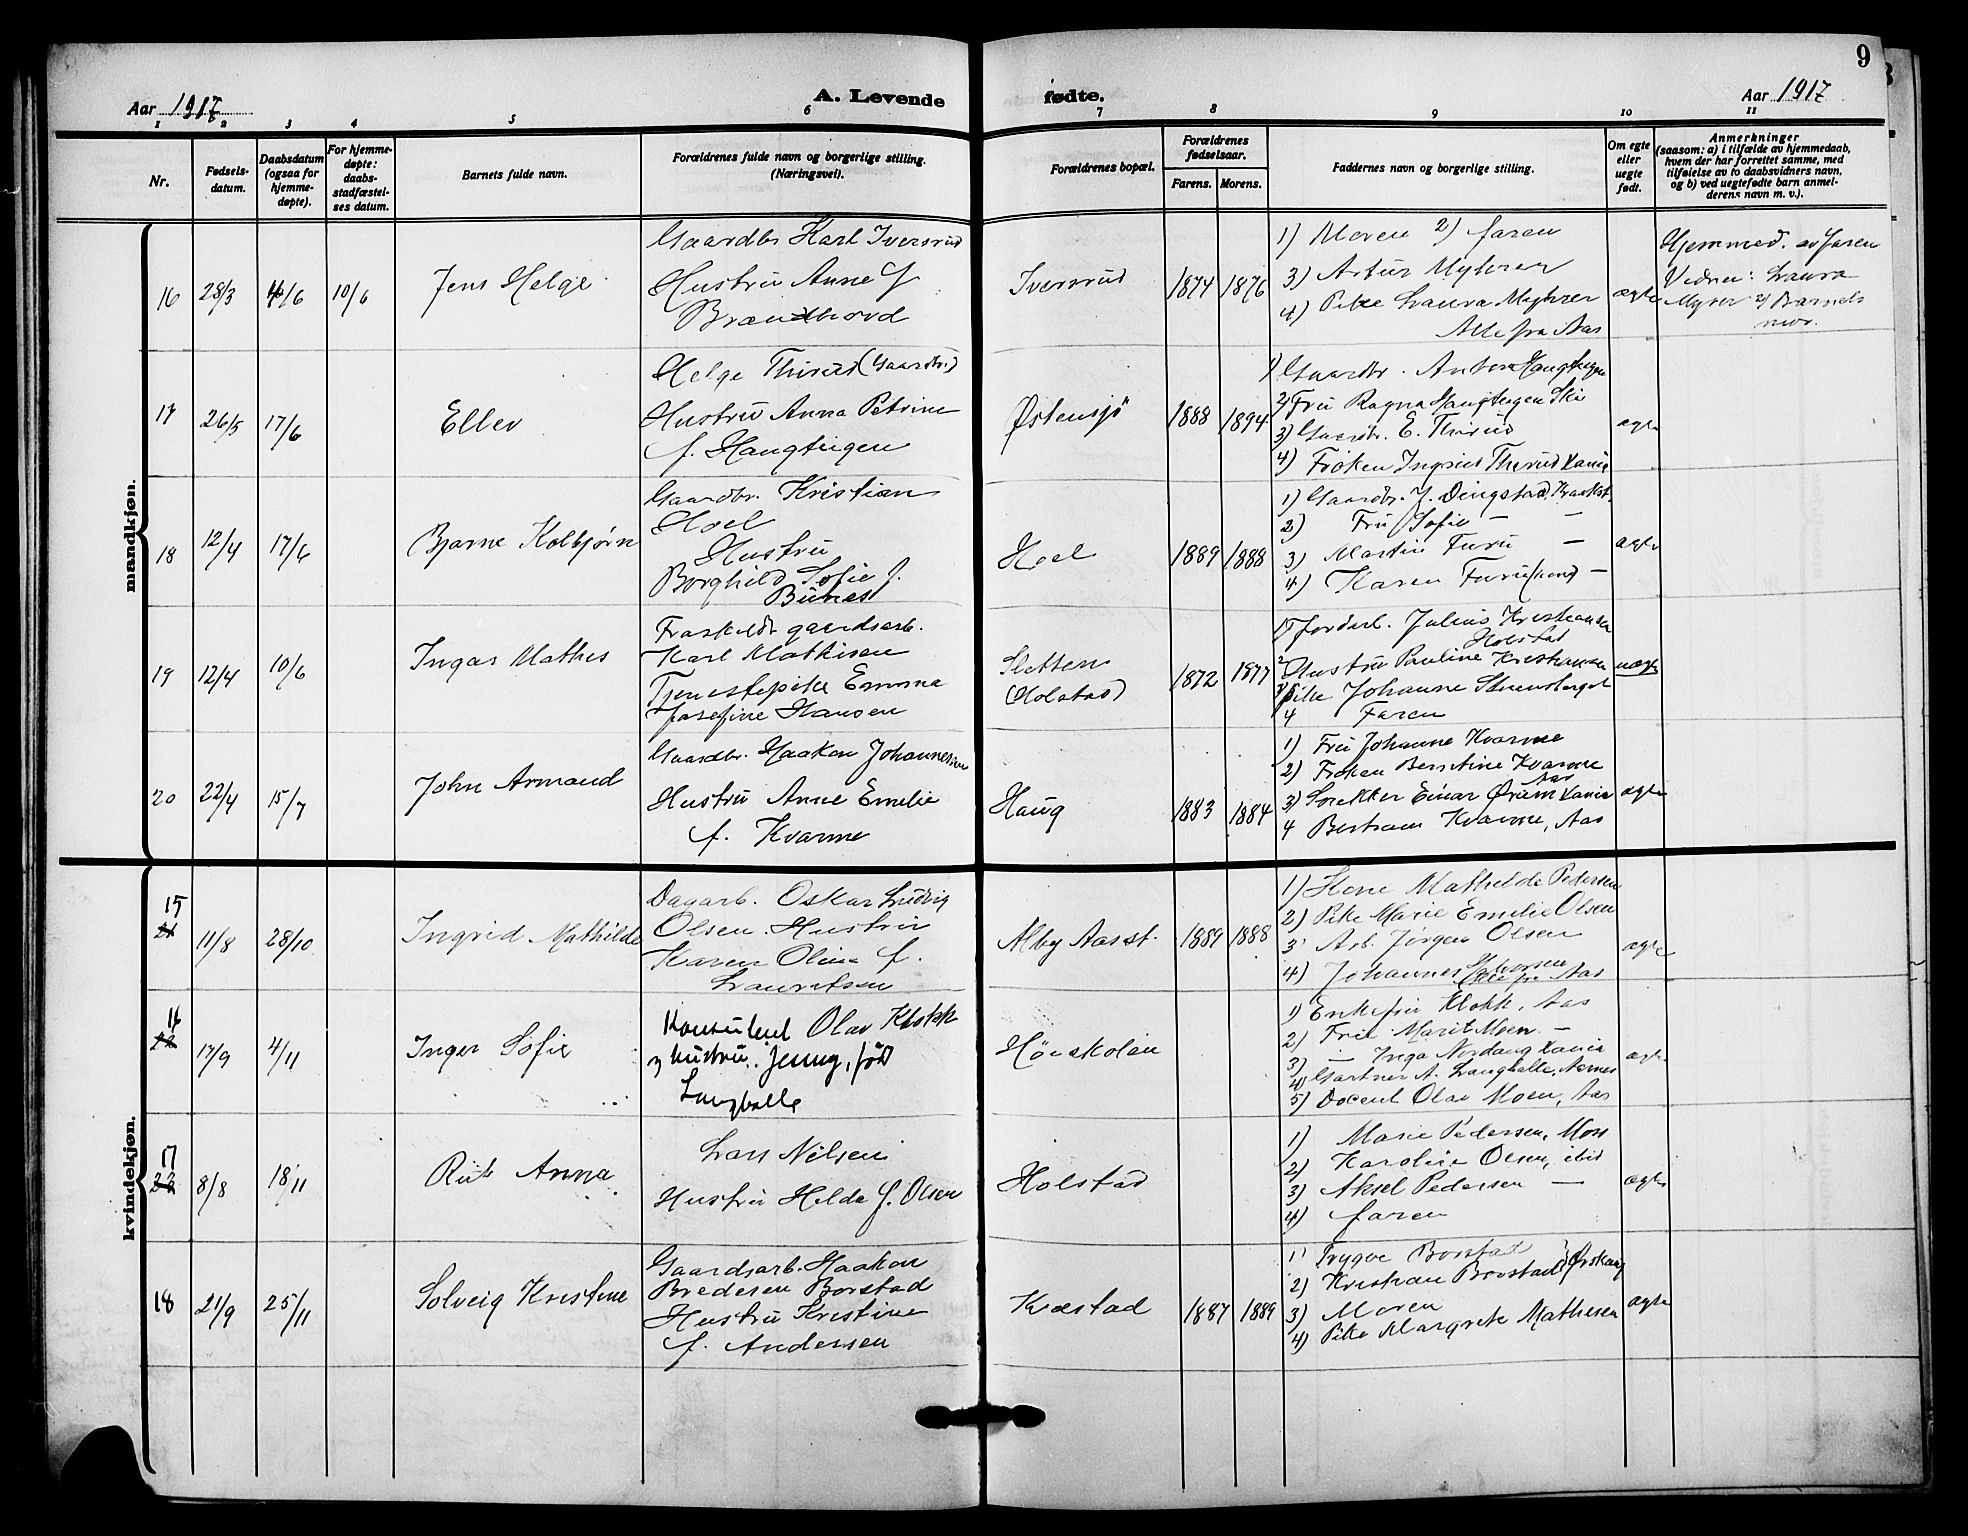 9
Aar 1917
A. Levende
fødte.
Aar 1917
1 2 3 4 5 6 7 8 9 10 11
Nr.
Fødsels-
datum.
Daabsdatum
(ogsaa for
hjemme-
døpte).
For hjemme-
døpte:
daabs-
stadfæstel-
ses datum.
Barnets fulde navn.
Forældrenes fulde navn og borgerlige stilling.
(Næringsvei).
Forældrenes bopæl.
Forældrenes
fødselsaar.
Farens. Morens.
Faddernes navn og borgerlige stilling.
Om egte
eller
uegte
født.
Anmerkninger
(saasom: a) i tilfælde av hjemmedaab,
hvem der har forrettet samme, med
tilføielse av to daabsvidners navn,
og b) ved uegtefødte barn anmel-
derens navn m. v.).
mandkjøn.
16 28/3 4/6 10/6 Jens Helge
Gaardbr Karl Iversrud
Hustru Anne f
Brændhovd
Iversrud 1874 1876
1) Moren 2) faren
3) Artur Myhrer
4) Pike Laura Myhrer
Alle fra Aas
ægte
Hjemmed. av faren
Vidner: Laura
Myrer 2) Barnets
mor.
17 26/5 17/6 Ellev
Helge Thirud (Gaardbr.)
Hustru Anna Petrine
f. Haugteigen
Østensjö 1888 1894
1) Gaardbr. Anton Haugteigen
2) Fru Ragna Haugteigen Ski
3) Gaardbr. E. Thirud
4) Frøken Ingrid Thirud Kania
ægte
18 12/4 17/6 Bjarne Kolbjørn
Gaardbr. Kristian
Hoel
Hustru
Borghild Sofie f.
Bunes
Hoel 1889 1888
1) Gaardbr. J. Dingstad, Kraakst.
2) Fru Sofie — —
3) Martin Furu —
4) Karen Furu —
ægte
19 12/4 10/6 Ingar Mathis
Fraskildt gaardsarb.
Karl Mathisen
Tjenestepike Emma
Josefine Hansen
Sletten
(Holstad)
1872 1877
1) Jordarb. Julius Kristiansen
Holstad
2 Hustru Pauline Kristiansen
3) Pike Johanne
4 Faren
uægte
20 22/4 15/7 John Armand
Gaardbr. Haakon Johannessen
Hustru Anne Emelie
f. Kvarme
Haug 1883 1884
1) Fru Johanne Kvarme
2) Frøken Berntine Kvarme
Aas
3) Snekker Einar Ørum Kania
4 Bertram Kvarme, Aas
ægte
kvindekjøn.
15
21 11/8 28/10 Ingrid Mathilde
Dagarb. Oskar Ludvig
Olsen. Hustru
Karen Oline f.
Lauritsen
Alby Aas st. 1889 1888
1) Kone Mathilde Pedersen
2) Pike Marie Emelie Olsen
3) Arb. Jörgen Olsen
4) Johannes Halvorsen
Alle fra Aas
ægte
16
22 17/9 4/11 Inger Sofie
Konsulent Olav Klokk
og hustru Jenny, født
Langballe
Høiskolen
1) Enkefru Klokk, Aas
2) Fru Marit Moen —
3) — Inga Nordang Kania
4) Gartner A. Langballe, Nesnes
5) Docent Olav Moen, Aas
ægte
17
23 8/8 18/11 Rut Anna
Lars Nilsen
Hustru Hilda f. Olsen
Holstad
1) Marie Pedersen, Moss
2) Karoline Olsen, ibid
3) Aksel Pedersen —
4) faren
ægte
18 21/9 25/11 Solveig Kristine
Gaardsarb. Haakon
Bredesen Borstad
Hustru Kristine
f. Andersen
Kvestad 1887 1889
1) Trygve Borstad
2) Kristian Borstad, Ørskaug
3) Moren
4) Pike Margrete Mathisen
ægte